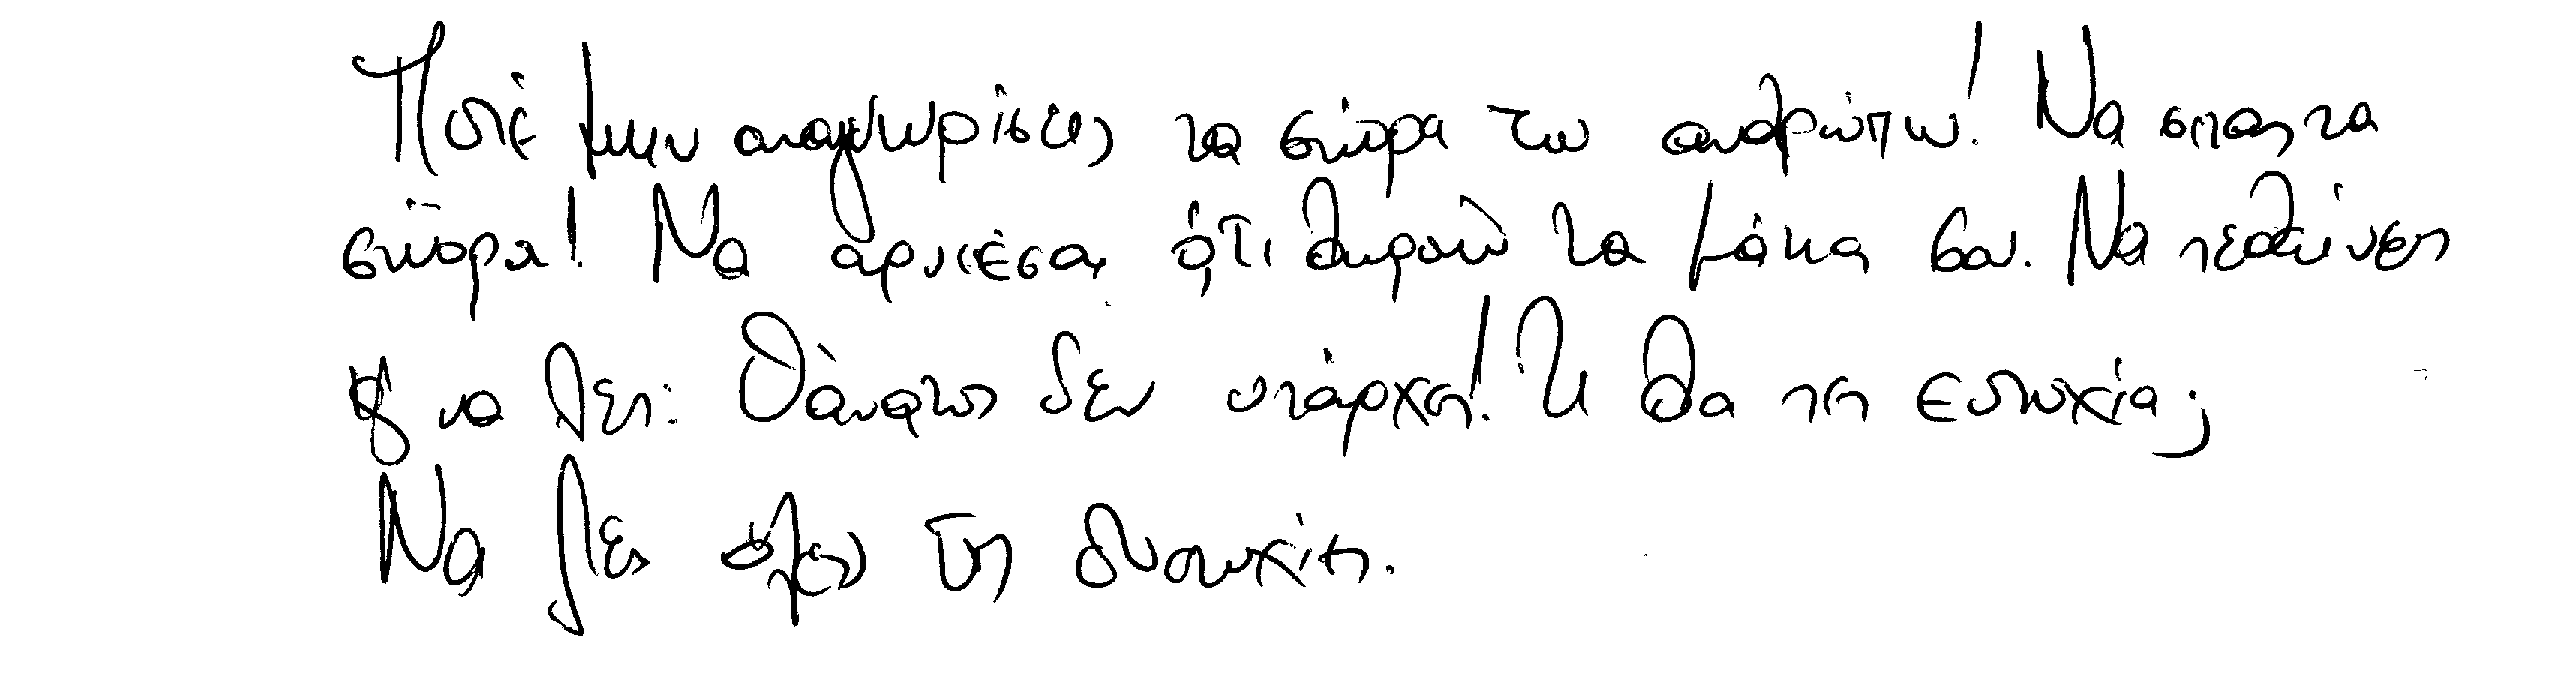 Ποτέ μην αναγνωρίσεις τα σύνορα του ανθρώπου! Να σπας τα
σύνορα! Να αρνιέσαι ό,τι θωρούν τα μάτια σου. Να πεθαίνεις
και να λες: Θάνατος δεν υπάρχει! Τι θα πει ευτυχία;
Να ζεις όλες τις δυστυχίες.